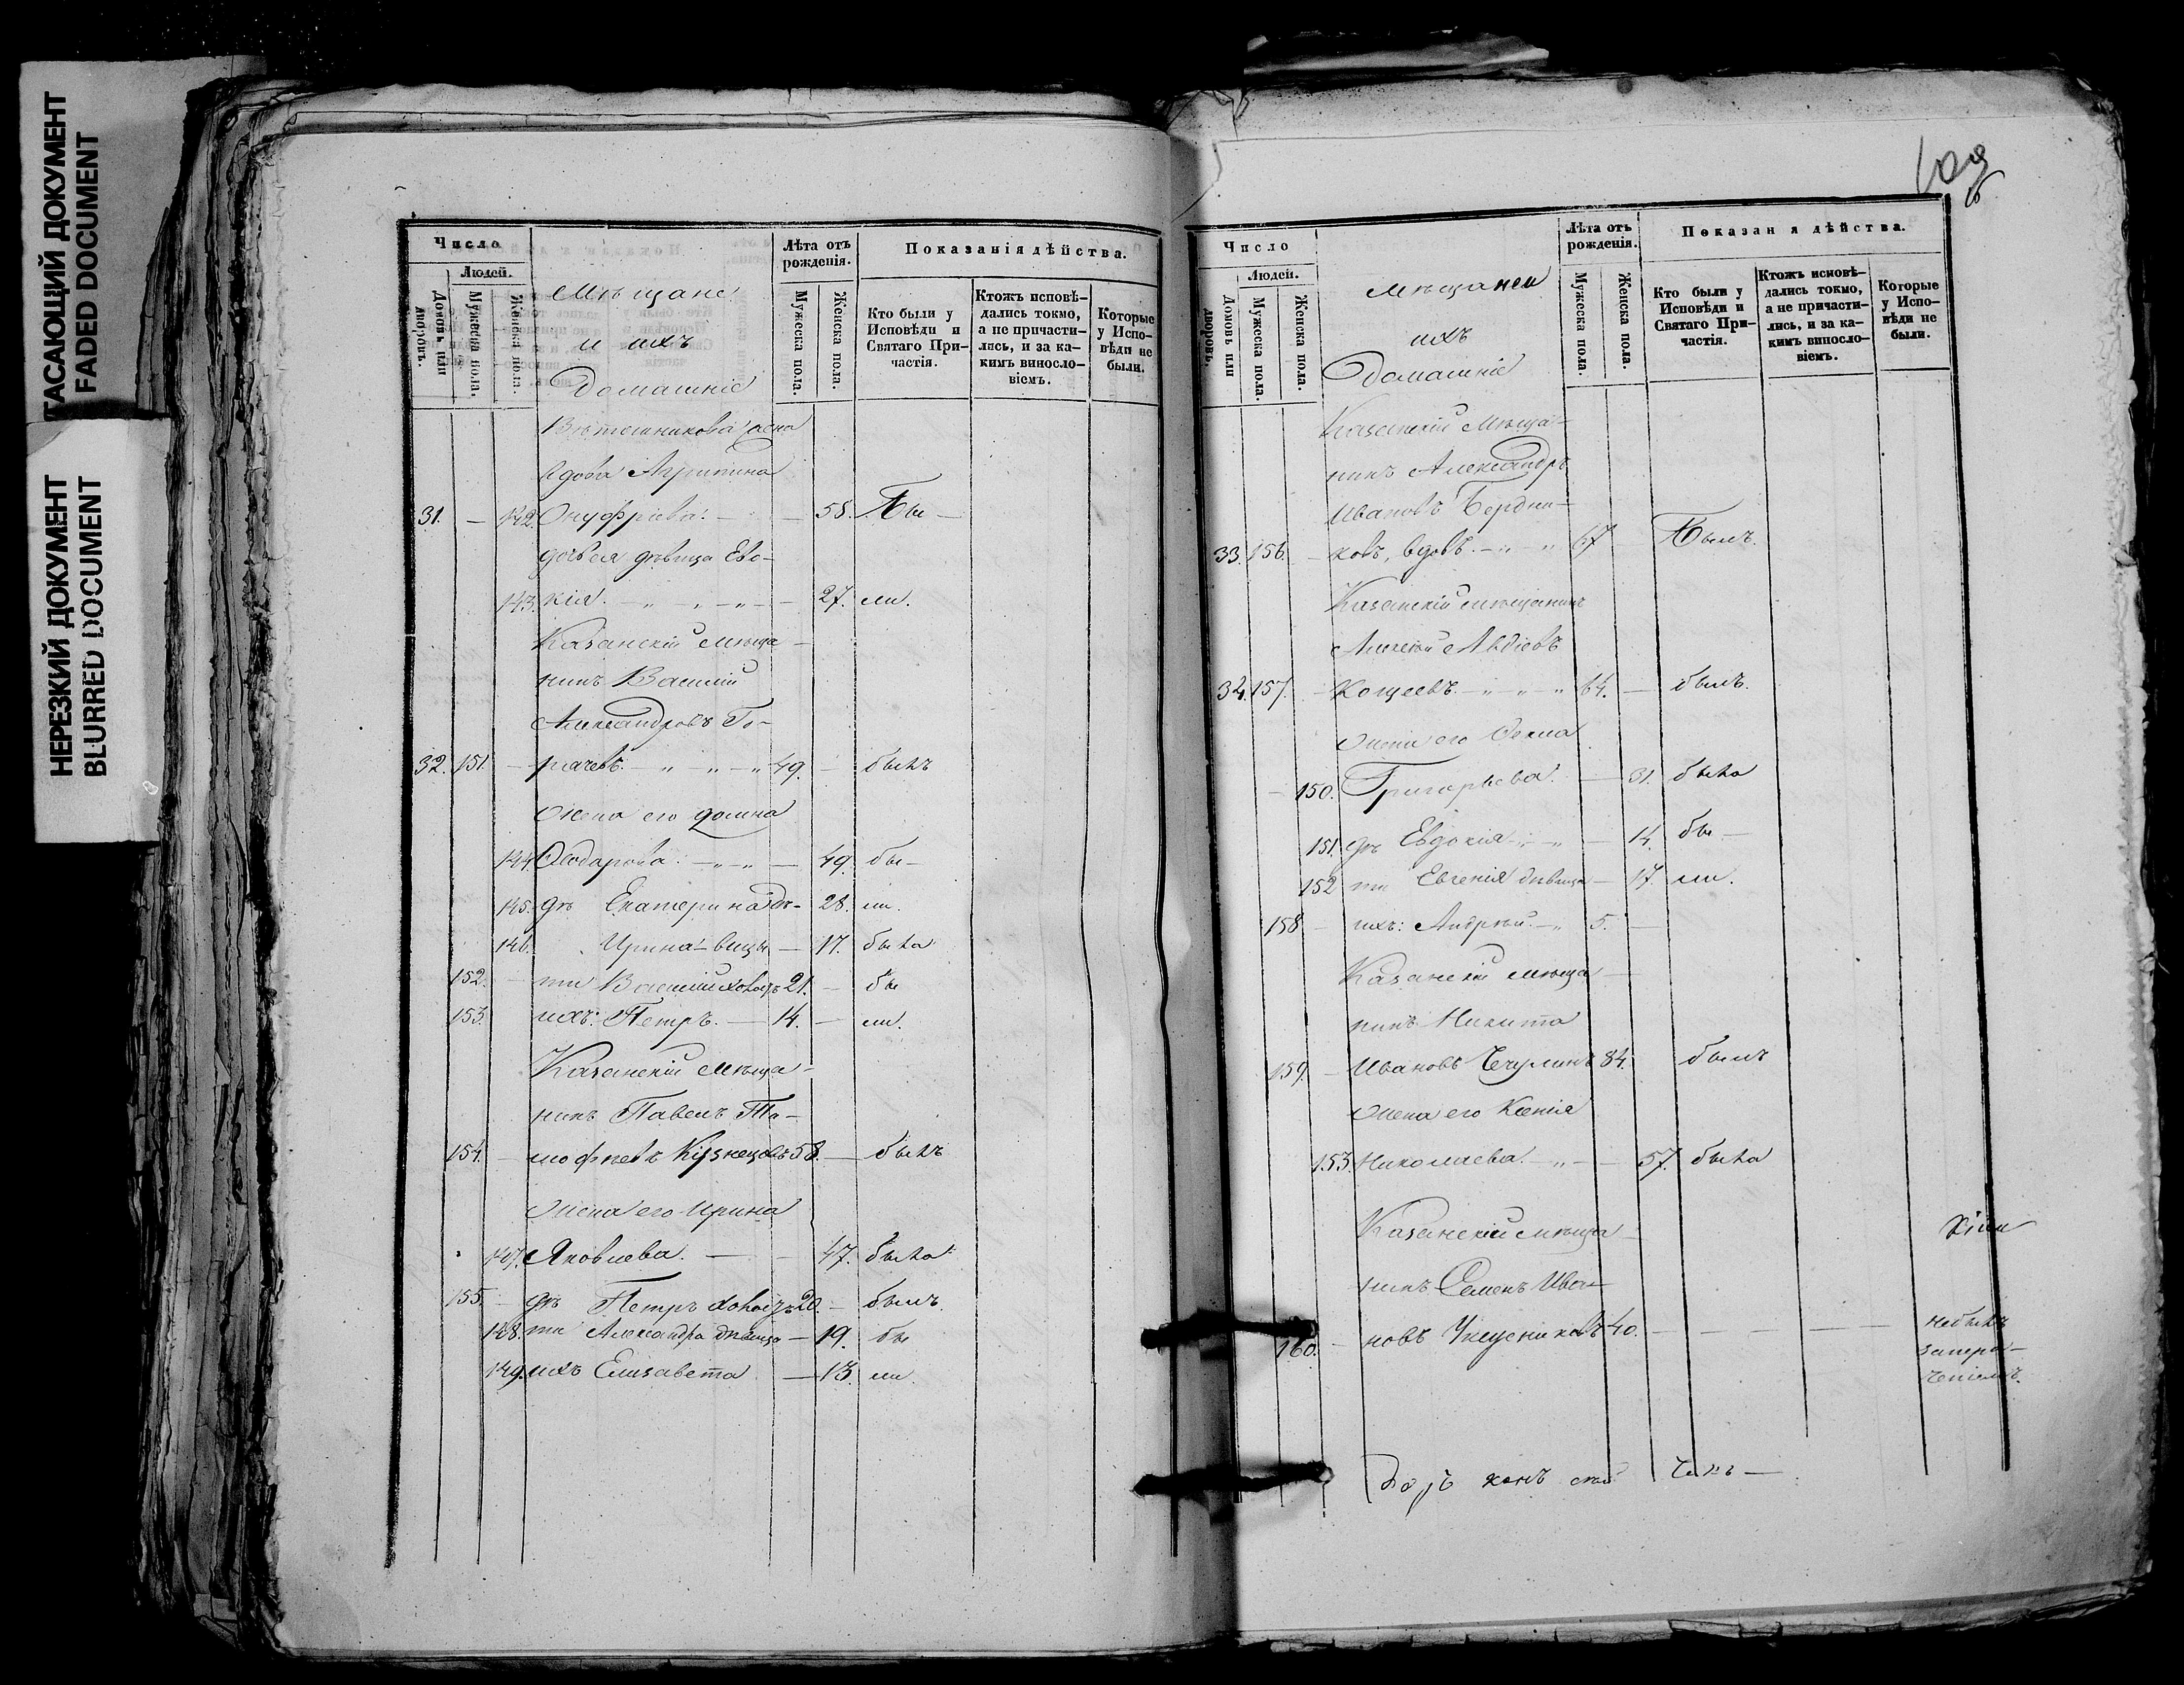 ГАСАЮЩИЙ ДОКУМЕНТ
FADED DOCUMENT
НЕРЕЗКИЙ ДОКУМЕНТ
BLURRED DOCUMENT
Число
Людей.
Домовъ или дворовъ.
Мужеска пола.
Женска пола.
Мѣщане
и ихъ
Домашніе
Лѣта отъ рожденія.
Мужеска пола.
Женска пола.
Показанія дѣйства.
Кто были у Исповѣди и Святаго Причастія.
Ктожъ исповѣдались токмо, а не причастились, и за какимъ винословіемъ.
Которые у Исповѣди не были.
Вѣтошникова
вдова Агрипина
31. — 142. Онуфріева. — 58. Бы—
дочь ея дѣвица Евдо-
143. кія. — „ — „ — 27. ли.
Казанскій мѣща-
нинъ Василій
Александровъ Го-
32. 151. — рячевъ. — „ „ — „ 49. — былъ
Жена его Домна
144. Ѳеодорова. — „ — „ — 49. бы—
145. дѣ Екатерина дѣ- 28. ли.
146. Ирина вицы — 17. была
152. — ти Василій холос. 21. — бы
153. ихъ: Петръ. — 14. — ли.
Казанскій мѣща-
нинъ Павелъ Ти-
154. — мофеевъ Кузнецовъ 58. — былъ
Жена его Ирина
147. Яковлева. — 47. была
155. — дѣ Петръ холос. 20. — былъ.
148. ти Александра дѣвица — 19. бы
149. ихъ Елизавета — 13. ли.
109
Число
Людей.
Домовъ или дворовъ.
Мужеска пола.
Женска пола.
Мѣщане и
ихъ
Домашніе
Лѣта отъ рожденія.
Мужеска пола.
Женска пола.
Показан я дѣйства.
Кто были у Исповѣди и Святаго Причастія.
Ктожъ исповѣдались токмо, а не причастились, и за какимъ винословіемъ.
Которые у Исповѣди не были.
Казанскій мѣща-
нинъ Александръ
Ивановъ Бердни-
33. 156. — ковъ, вдовъ. — „ — „ 67 Былъ.
Казанскій мѣщанинъ
Алексѣй Авдіевъ
34. 157. — Кощеевъ. — „ — „ — „ 64. — былъ.
Жена его Ѳекла
— 150. Григорьева. — 31. была
151. дѣ Евдокія — „ — 14. бы—
152 ти Евгенія дѣвица — 17. ли.
158 — ихъ: Андрей. — „ 5. —
Казанскій мѣща-
нинъ Никита
159. — Ивановъ Чурлинъ 84. былъ
Жена его Ксенія
153. Николаева. — „ — — 57. была
Казанскій мѣща-
нинъ Семенъ Ива-
160. — новъ Уксусниковъ 40. — — — — небылъ